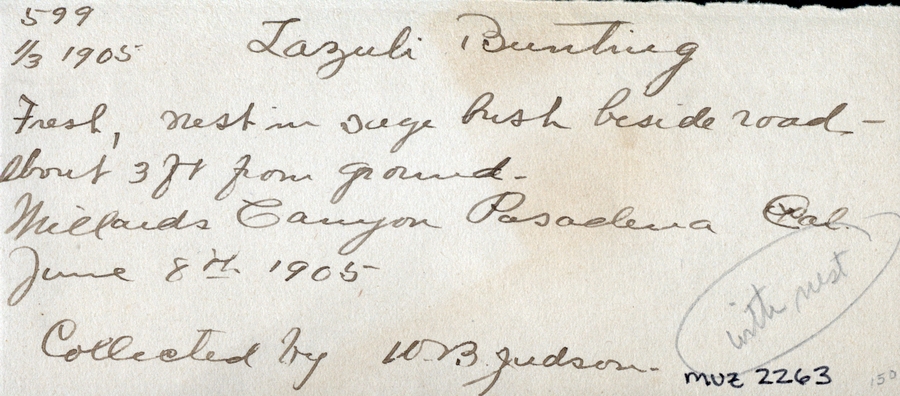 599
1/3 1905
Lazuli Bunting
Fresh, nest in sage bush beside road -
About 3 ft from ground.
Millards Canyon Pasadena Cal.
June 8th 1905
with nest
Collected by W. B. Judson.
MVZ 2263
150